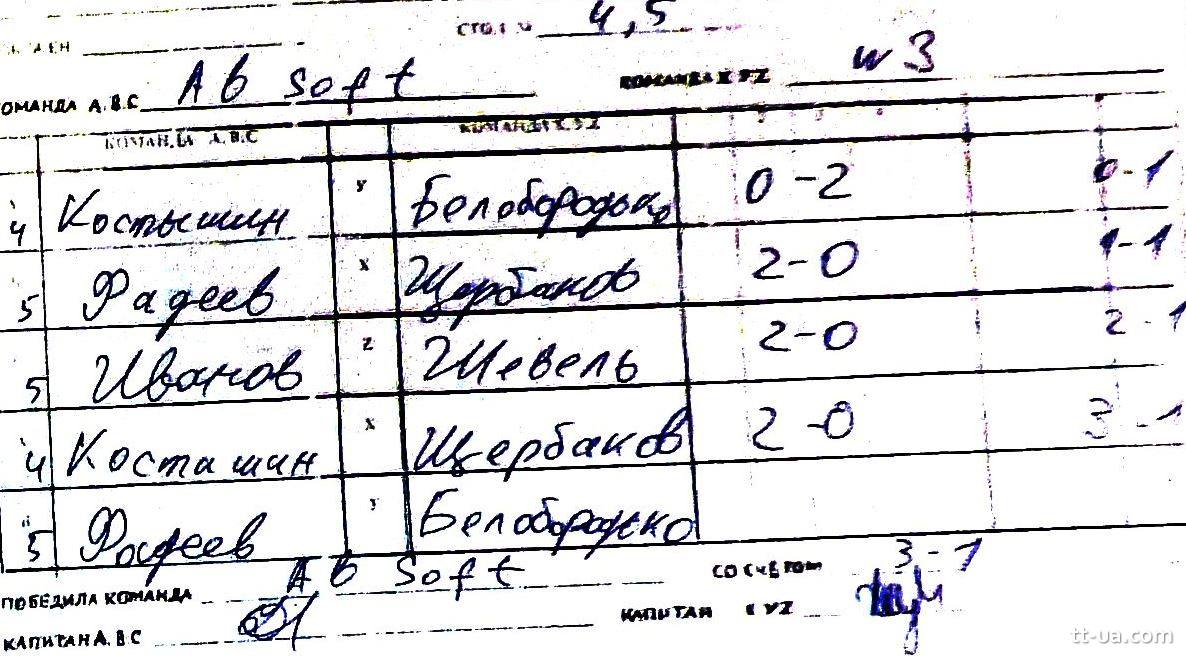 СТОЛ № 4,5
КОМАНДА А.В.С Ab Soft КОМАНДА X Y Z w 3
КОМАНДА А.В.С КОМАНДА X Y Z
4 Костышин Y Белобородько 0-2 0-1
5 Фадеев X Щербаков 2-0 1-1
5 Иванов Z Шевель 2-0 2-1
4 Косташин X Щербаков 2-0 3-1
5 Фадеев Y Белобородько
ПОБЕДИЛА КОМАНДА Ab Soft СО СЧЁТОМ 3-1
КАПИТАН А.В С КАПИТАН X YZ
tt-ua.com